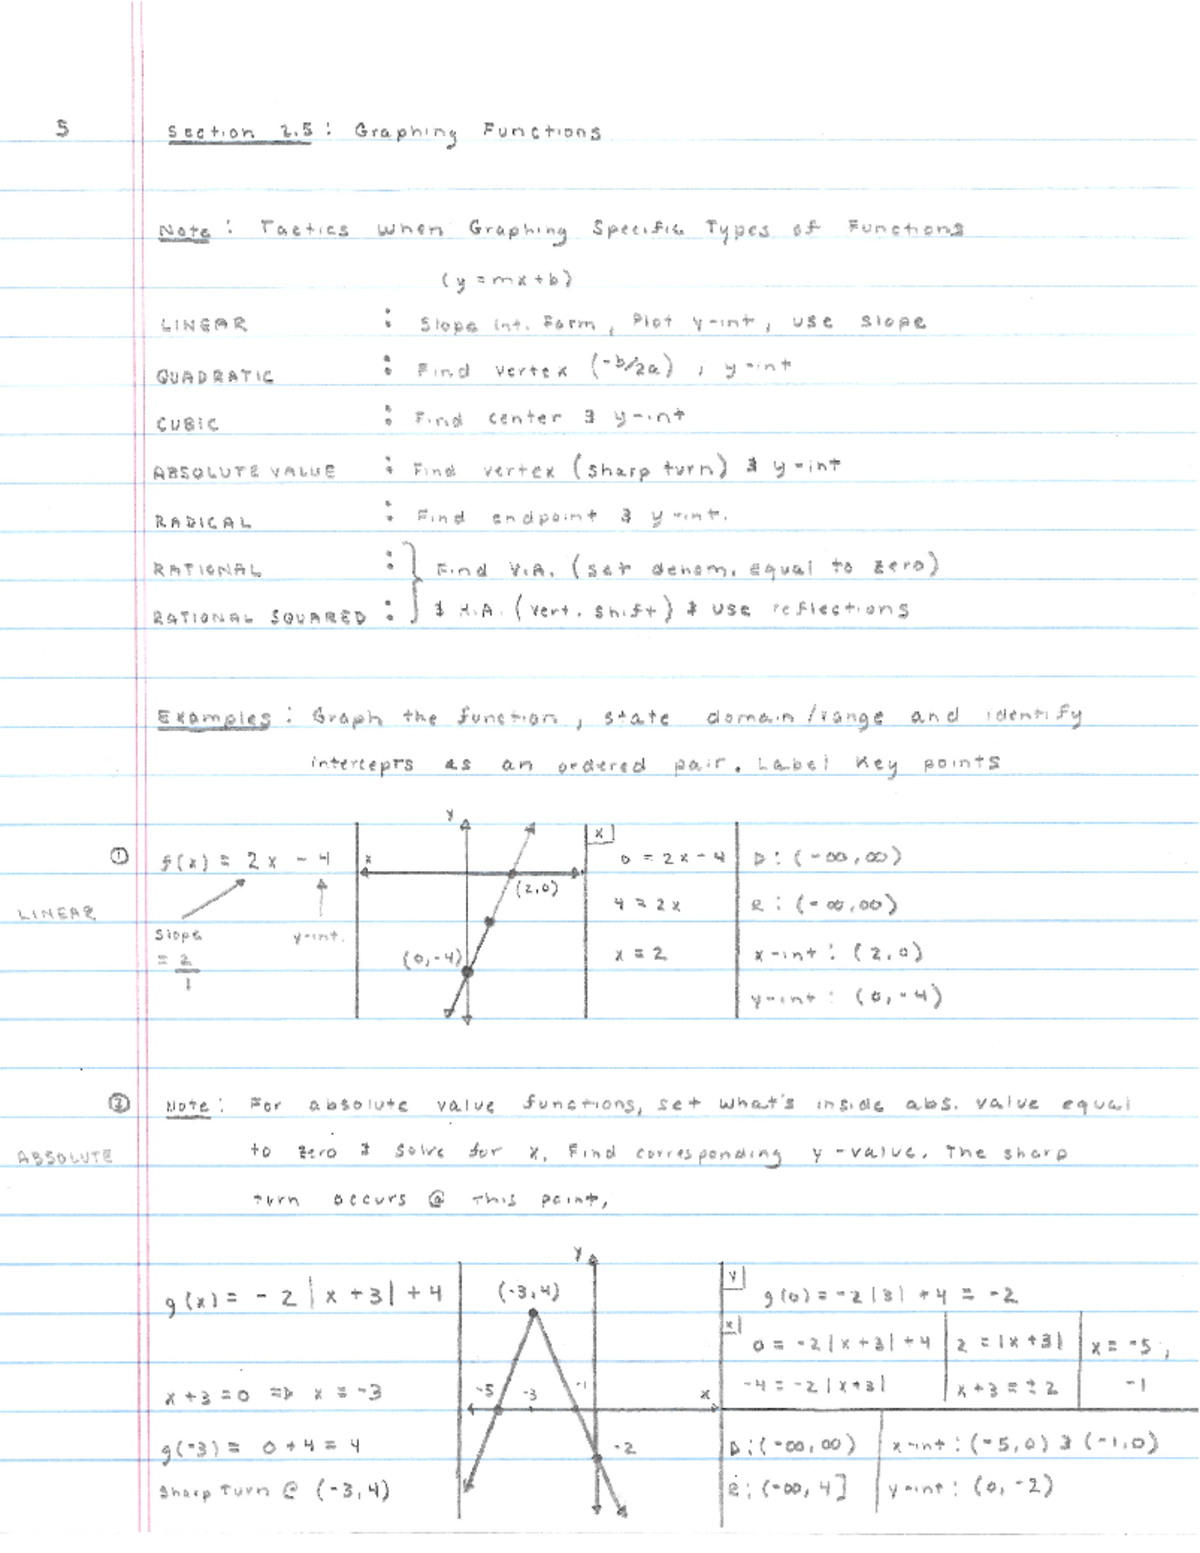 5 Section 2.5: Graphing Functions
Note: Tactics when Graphing Specific Types of Functions
(y = mx + b)
LINEAR : Slope Int. Form, Plot y-int, use slope
QUADRATIC : Find vertex (-b/2a), y-int
CUBIC : Find center & y-int
ABSOLUTE VALUE : Find vertex (sharp turn) & y-int
RADICAL : Find endpoint & y-int.
RATIONAL : Find V.A. (set denom. equal to zero)
RATIONAL SQUARED : & H.A. (vert. shift) & use reflections
Examples: Graph the function, state domain/range and identify
intercepts as an ordered pair. Label key points
① f(x) = 2x - 4
LINEAR
slope = 2/1
y-int.
y
x
(2,0)
(0,-4)
x
0 = 2x - 4
4 = 2x
x = 2
D: (-∞,∞)
R: (-∞,∞)
x-int: (2,0)
y-int: (0,-4)
② Note: For absolute value functions, set what's inside abs. value equal
ABSOLUTE to zero & solve for x. Find corresponding y-value. The sharp
turn occurs @ this point.
g(x) = -2|x+3| + 4
x+3=0 => x = -3
g(-3) = 0+4 = 4
Sharp Turn @ (-3,4)
y
(-3,4)
-5 -3 -1 x
-2
y g(0) = -2|3| + 4 = -2
x 0 = -2|x+3| + 4
-4 = -2|x+3|
2 = |x+3|
x+3 = ±2
x = -5,
-1
D: (-∞,∞)
R: (-∞,4]
x-int: (-5,0) & (-1,0)
y-int: (0,-2)